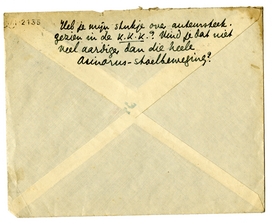 Heb je mijn stukje over auteursrecht.
gezien in de K.K.K.? Vind je dat niet
veel aardiger dan die heele
Asinarus-stoelbeweging?